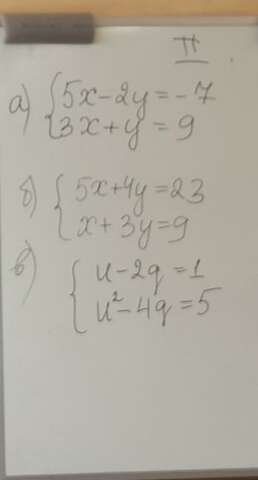 П
а) { 5x-2y=-7
3x+y=9
б) { 5x+4y=23
x+3y=9
в) { u-2q=1
u²-4q=5